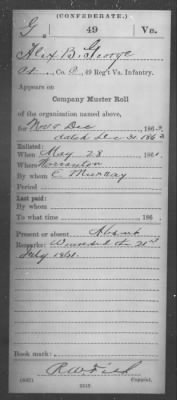 (CONFEDERATE.)
G. 49 Va.
Alex B. George
Co. 49 Reg't Va. Infantry.
Appears on
Company Muster Roll
of the organization named above,
for Nov & Dec , 186
dated Dec. 31, 186
Enlisted:
When May 28 , 1861.
Where Warrenton
By whom E. Murray
Period
Last paid:
By whom
To what time , 186
Present or absent Absent
Remarks: Wounded the 21st
July 1861.
Book mark:
R W
Copyist.